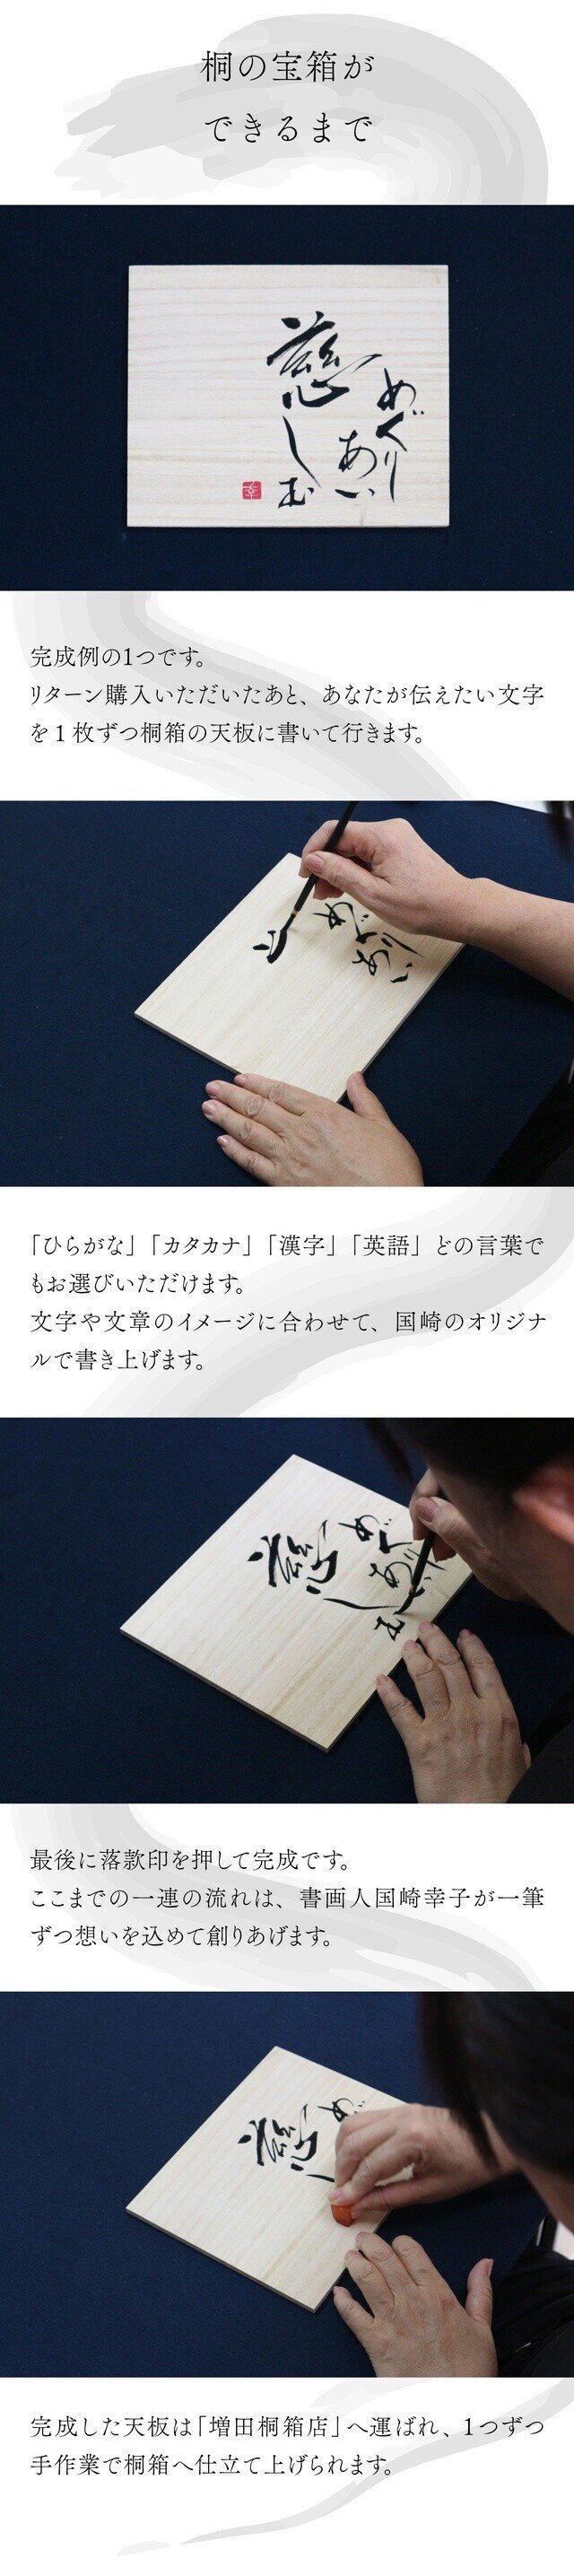 桐の宝箱が
できるまで
めぐり
あい
慈しむ
幸
完成例の1つです。
リターン購入いただいたあと、あなたが伝えたい文字
を1枚ずつ桐箱の天板に書いて行きます。
「ひらがな」「カタカナ」「漢字」「英語」どの言葉で
もお選びいただけます。
文字や文章のイメージに合わせて、国崎のオリジナ
ルで書き上げます。
最後に落款印を押して完成です。
ここまでの一連の流れは、書画人国崎幸子が一筆
ずつ想いを込めて創りあげます。
完成した天板は「増田桐箱店」へ運ばれ、1つずつ
手作業で桐箱へ仕立て上げられます。